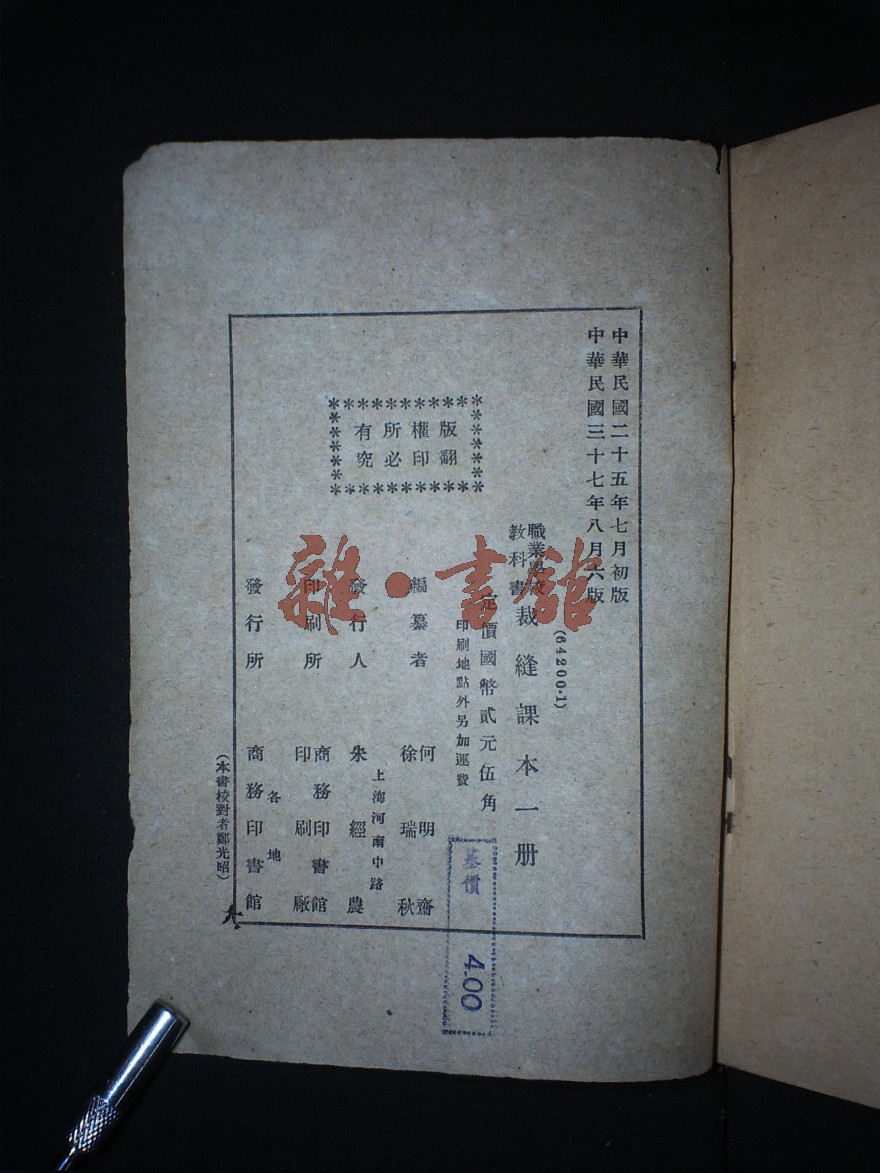 中華民國二十五年七月初版
中華民國三十七年八月六版
(64200·1)
職業學校
教科書
裁縫課本一册
定價國幣貳元伍角
印刷地點外另加運費
版權所有
翻印必究
編纂者
何明齋
徐瑞秋
發行人
上海河南中路
朱經農
印刷所
商務印書館
印刷廠
發行所
各地
商務印書館
(本書校對者鄭光昭)
基價
4.00
雜·書館